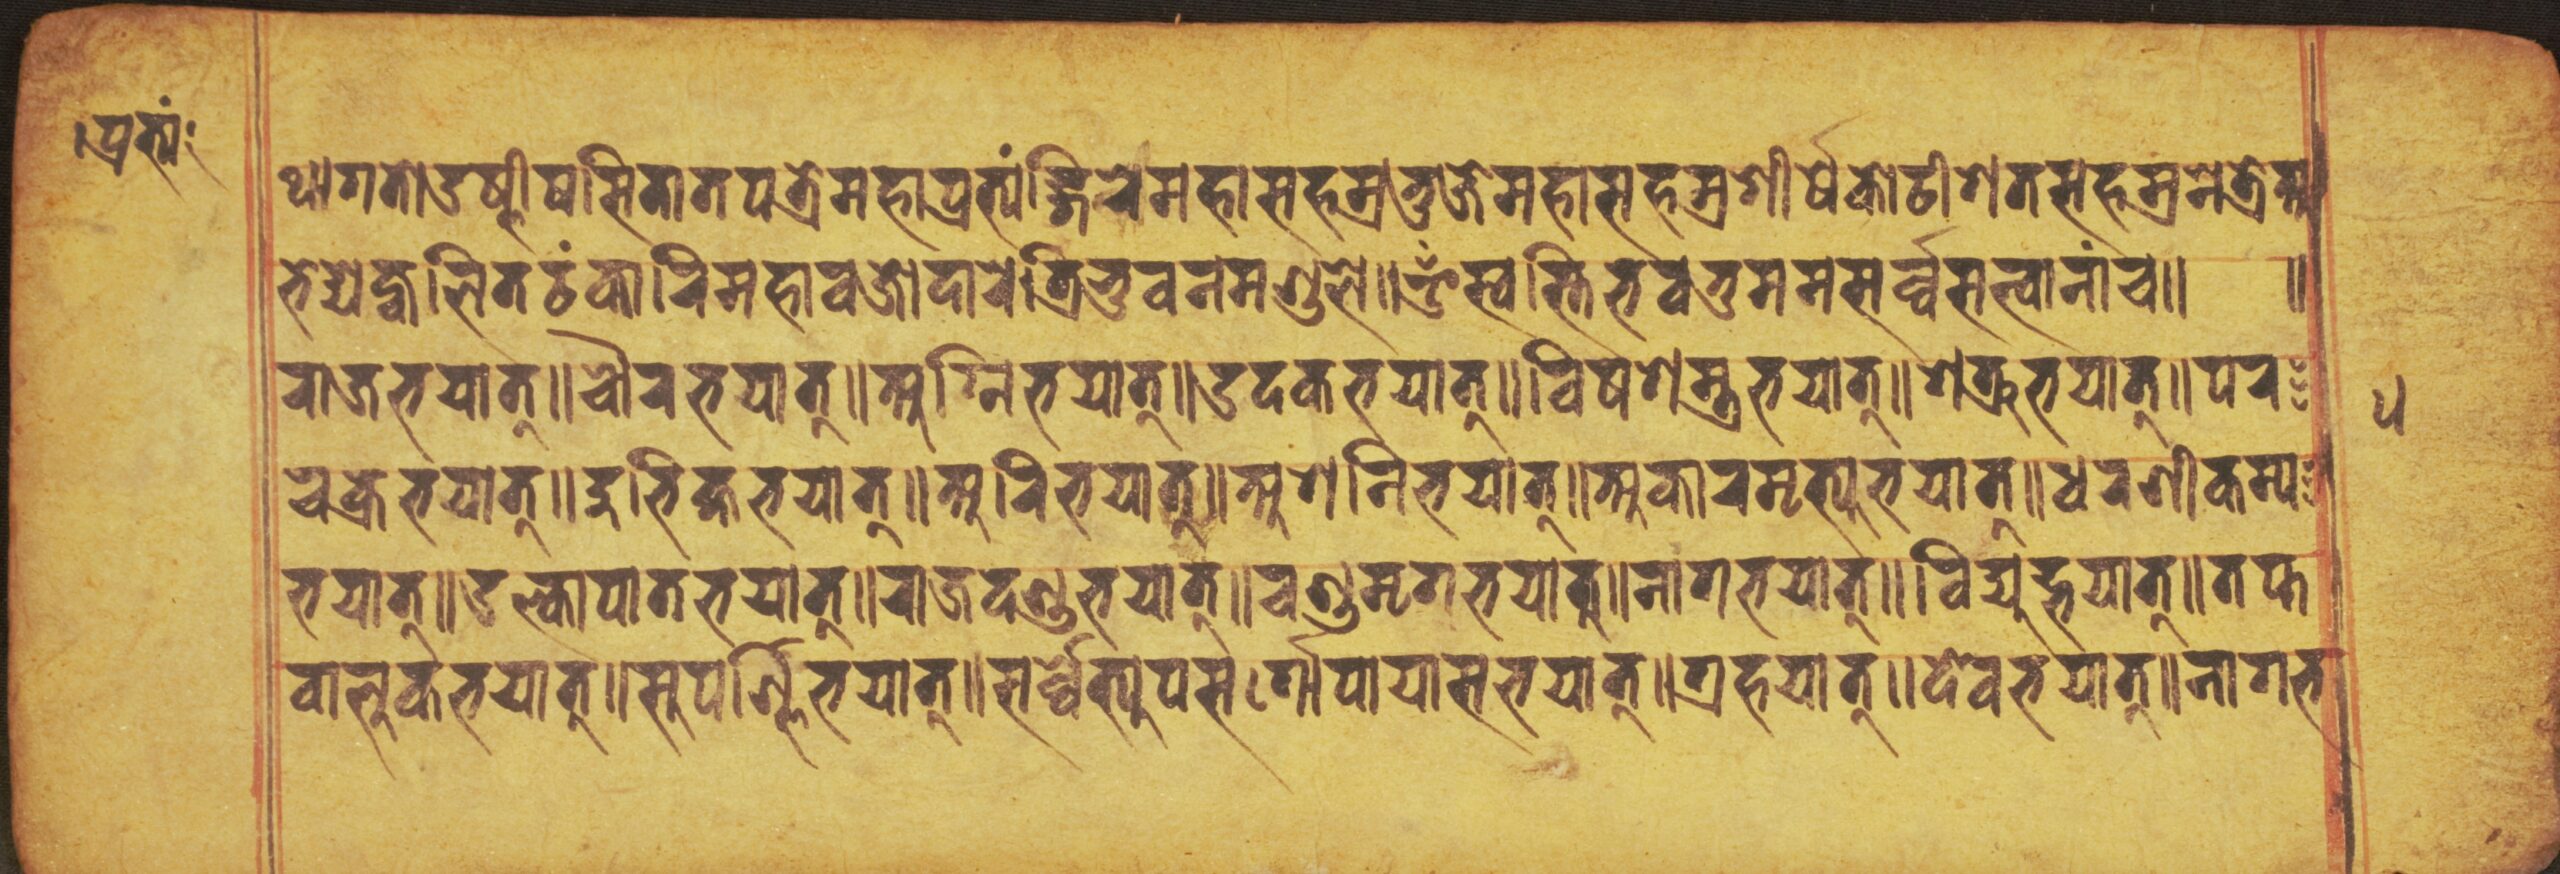 प्रत्यं
थागतोउष्णीषसितातपत्रेमहाप्रत्यंङ्गिरेमहासहस्रभुजेमहासहस्रशीर्षेकोटीशतसहस्रनेत्रेअ
भेद्येज्वलितटंकारिमहावज्रोदारेत्रिभुवनमण्डले॥ॐस्वस्तिभवतुममसर्व्वसत्वानांच॥ ॥
राजभयात्॥चौरभयात्॥अग्निभयात्॥उदकभयात्॥विषशस्त्रभयात्॥शत्रुभयात्॥पर
चक्रेभयात्॥दुर्भिक्षभयात्॥अरिभयात्॥अशनिभयात्॥अकारमृत्युभयात्॥धरणीकम्प
भयात्॥उल्कापातभयात्॥राजदण्डभयात्॥चण्डमृगभयात्॥नागभयात्॥विद्युद्भयात्॥तप्त
वालुकभयात्॥सुपर्ण्णिभयात्॥सर्व्वेत्युपसर्गोपायासभयात्॥ग्रहयात्॥देवभयात्॥नागभ
५